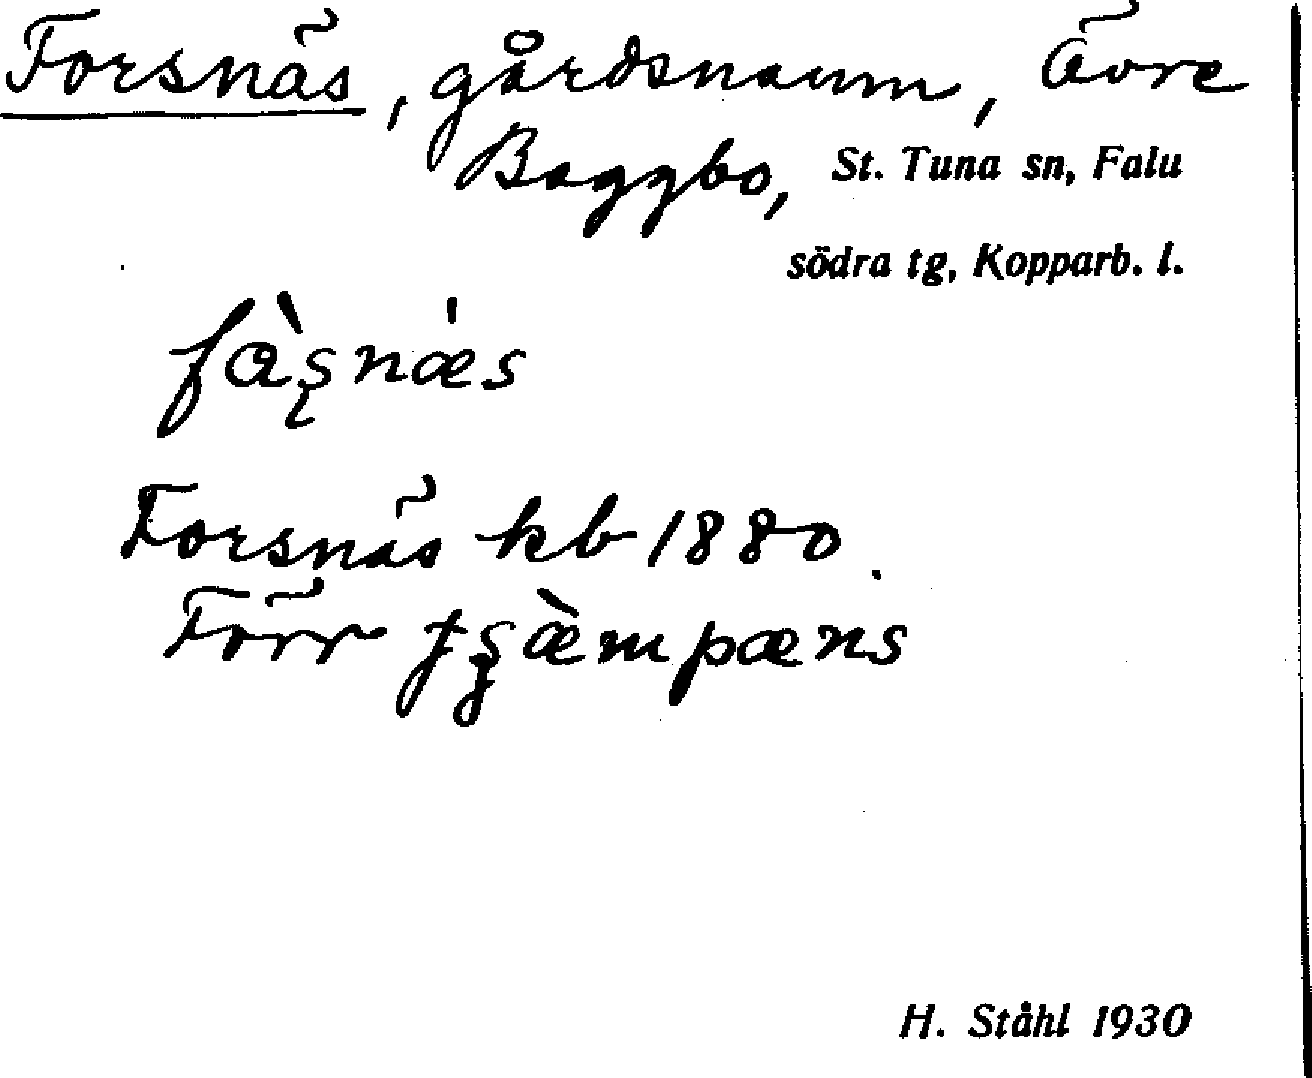 Forsnäs, gårdsnamn, Övre
Baggbo, St. Tuna sn, Falu
södra tg, Kopparb. l.
Forsnäs kb 1880.
Förr
H. Ståhl 1930